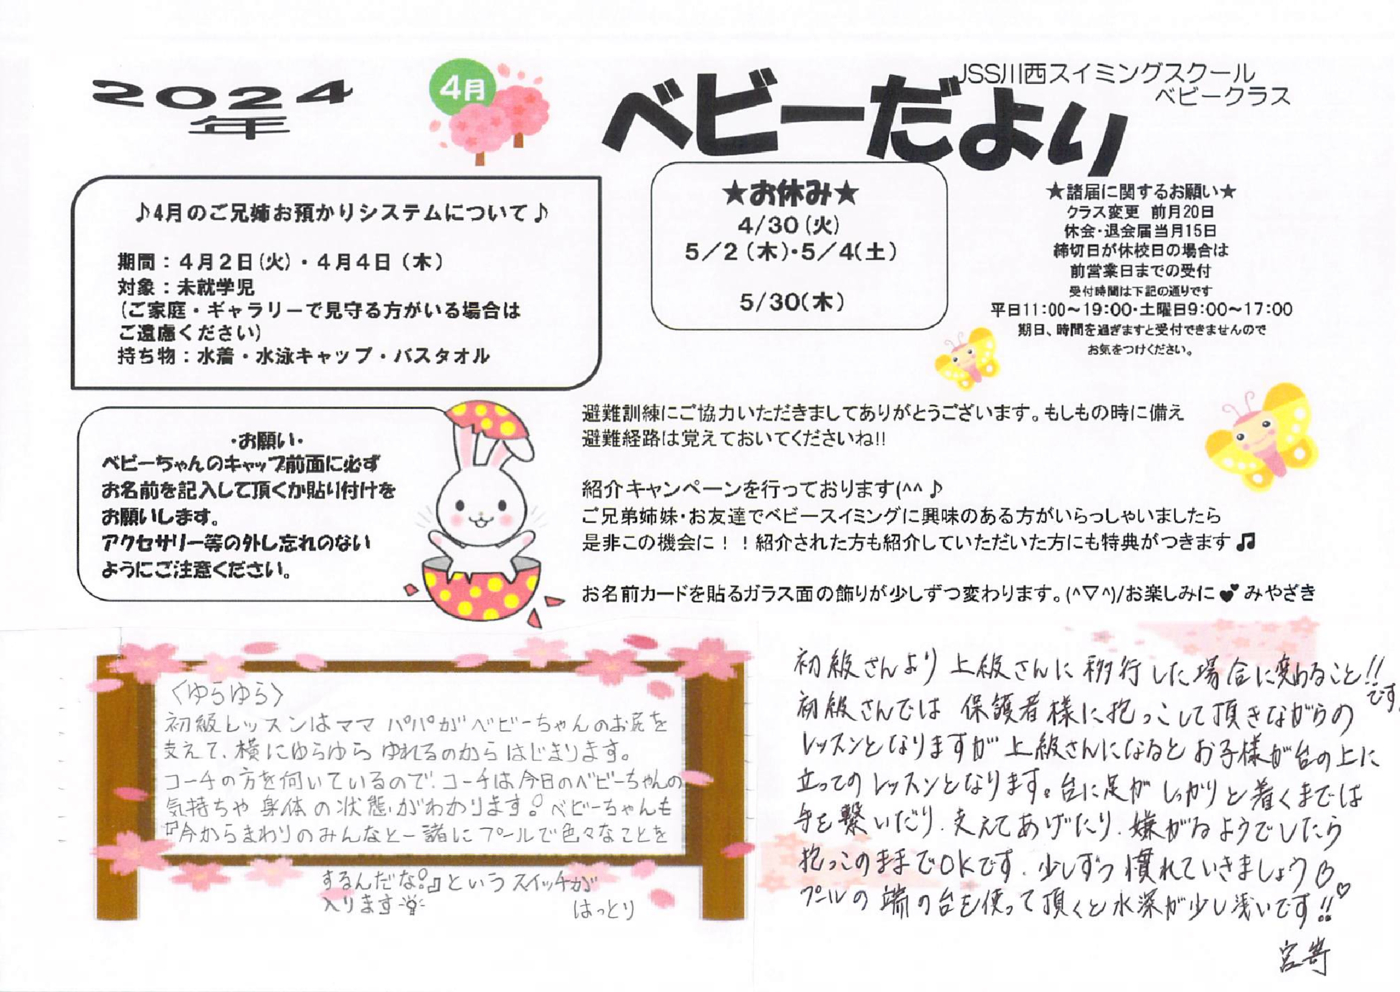 2024
年
4月
ベビーだより
JSS川西スイミングスクール
ベビークラス
♪4月のご兄姉お預かりシステムについて♪
期間：４月２日(火)・４月４日（木）
対象：未就学児
(ご家庭・ギャラリーで見守る方がいる場合は
ご遠慮ください)
持ち物：水着・水泳キャップ・バスタオル
★お休み★
4/30(火)
5/2（木）・5/4(土)
5/30(木)
★諸届に関するお願い★
クラス変更　前月20日
休会・退会届当月15日
締切日が休校日の場合は
前営業日までの受付
受付時間は下記の通りです
平日11:00～19:00・土曜日9:00～17:00
期日、時間を過ぎますと受付できませんので
お気をつけください。
・お願い・
ベビーちゃんのキャップ前面に必ず
お名前を記入して頂くか貼り付けを
お願いします。
アクセサリー等の外し忘れのない
ようにご注意ください。
避難訓練にご協力いただきましてありがとうございます。もしもの時に備え
避難経路は覚えておいてくださいね!!
紹介キャンペーンを行っております(^^♪
ご兄弟姉妹・お友達でベビースイミングに興味のある方がいらっしゃいましたら
是非この機会に！！紹介された方も紹介していただいた方にも特典がつきます♫
お名前カードを貼るガラス面の飾りが少しずつ変わります。(^▽^)/お楽しみに💕みやざき
〈ゆらゆら〉
初級レッスンはママ パパがベビーちゃんのお尻を
支えて、横にゆらゆら ゆれるのからはじまります。
コーチの方を向いているので、コーチは今日のベビーちゃんの
気持ちや身体の状態がわかります！ベビーちゃんも
『今からまわりのみんなと一諸にプールで色々なことを
するんだな！』というスイッチが
入ります
はっとり
初級さんより上級さんに移行した場合に変わること!!
です。
初級さんでは 保護者様に抱っこして頂きながらの
レッスンとなりますが上級さんになるとお子様が台の上に
立ってのレッスンとなります。台に足がしっかりと着くまでは
手を繋いだり、支えてあげたり、嫌がるようでしたら
抱っこのままでOKです。少しずつ慣れていきましょう
プールの端の台を使って頂くと水深が少し浅いです!!♡
宮嵜